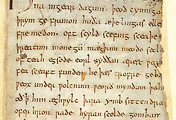 in gear dagum. þeod cyninga
þrym ge frunon huða æþelingas ellen
fremedon. oft scyld scefing sceaþe
þreatum monegū mægþum meodo setla
of teah egsode eorl syððan ærest wear
fea sceaft funden he þæs frofre geba
weox under wolcnum weorð myndum þah
oð ꝥ him æghwylc þara ymb sittendra
ofer hron rade hyran scolde gomban